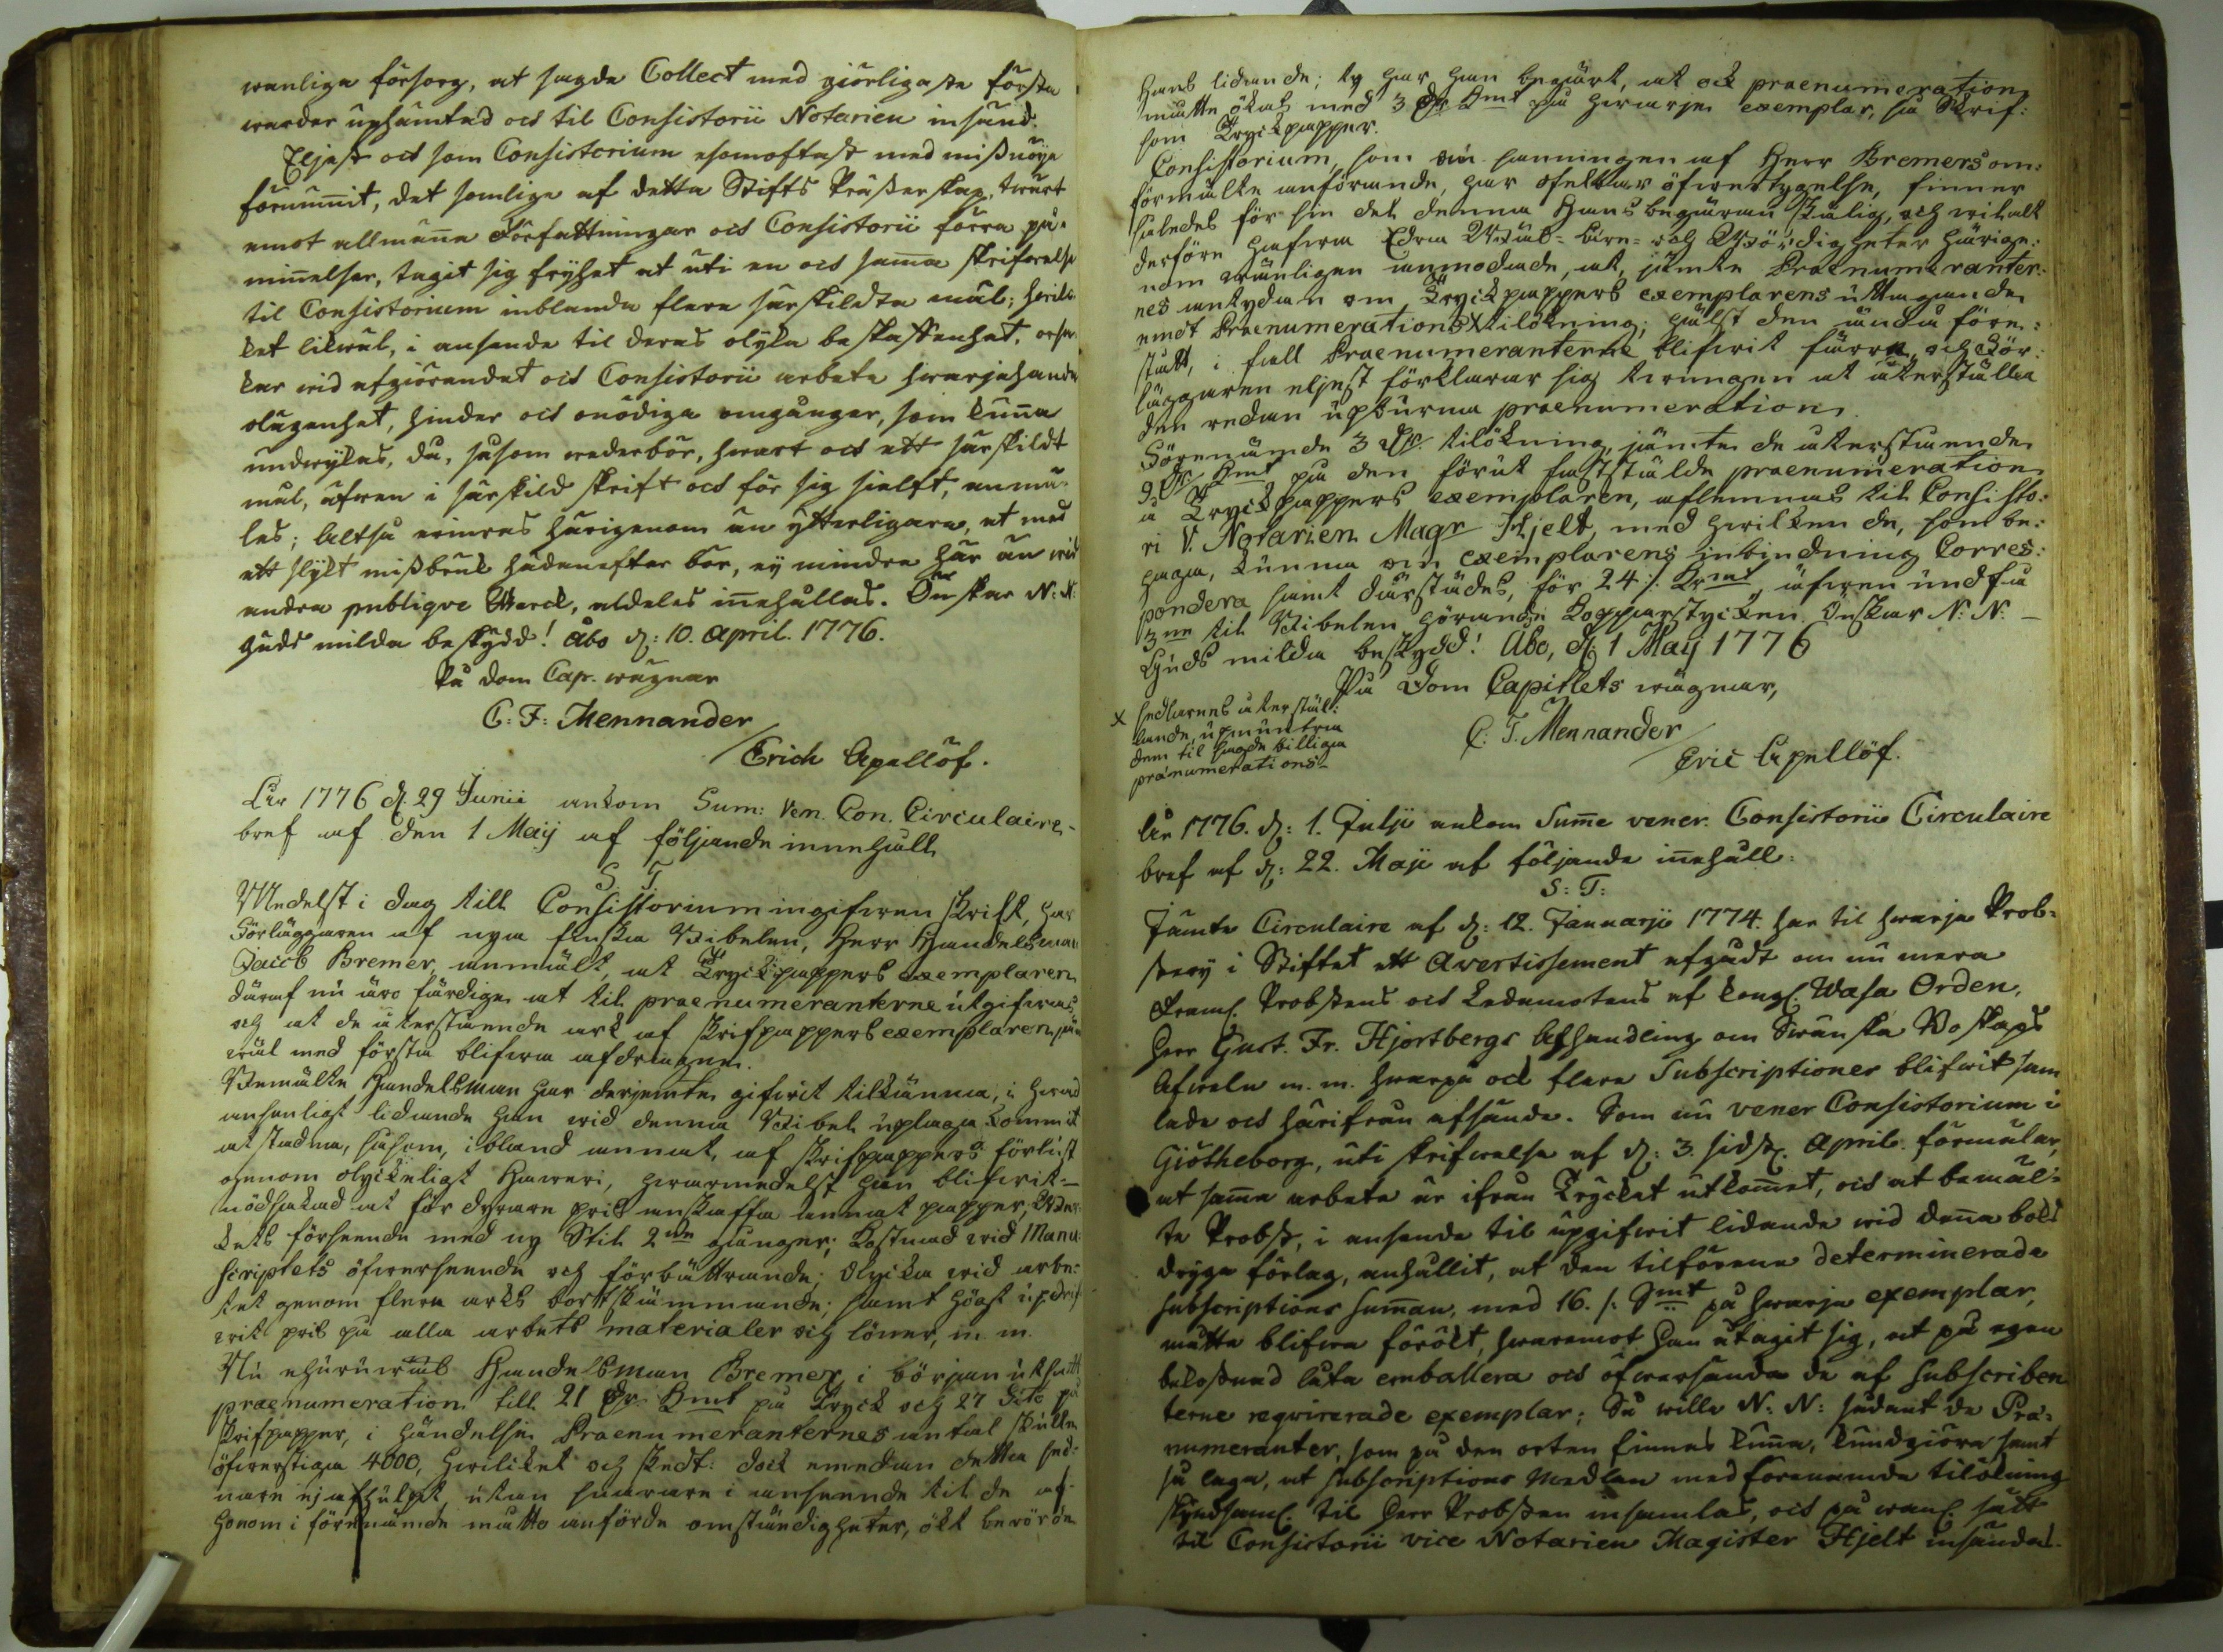 wanliga försorg, at sagde Collect med giörligaste första
warder uphämtad och til Consistorii Notarien insänd.
Eljest och som Consistorium esomoftast med missnöje
förummit, det somlige af detta Stifts Prästerskap, twärt
emot allmänna Författningar och Consistorii förra på-
minnelser, tagit sig fryhet at uti en och samma skrifwelse
til Consistorium inblanda flere särskildte mål; hwil-
ket likwäl, i anseende til deras olyka beskaffenhet, orsa-
kar wid afgiörandet och Consistorii arbete hwarjehanda
olägenhet, hinder och onödiga omgångar, som kunna
undwykas, då, såsom wederbör, hwart och ett särskildt
mål, äfwen i särskild skrift och för sig sielft, anmä-
les; Altså erinras härigenom än ytterligare, at med
ett slykt missbruk hädanefter bör, ey mindre här än wid
andra publiqve Werck, aldeles innehållas. Önskar N: N:
Guds milda beskydd! Åbo d: 10. April. 1776.
På Dom Cap. wägnar
C: F: Mennander
/ Erich Apellöf.
Åhr 1776 d. 29 Junii ankom Sum: Ven. Con. Circulaire-
bref af den 1 Maij af följande innehåll
S. T.
Medelst i dag till Consistorium ingifwen skrift, har
Förläggaren af nya finska Bibelen, Herr Handelsman
Jacob Bremer, anmält, at Tryckpappers exemplaren
däraf nu äro färdige at til praenumeranterne utgifwas
och at de återstående ark af skrifpappers exemplaren, jäm
wäl med första blifwa afdragne.
Bemälte Handelsman har derjemte gifwit tilkänna, i hwad
ansenligt lidande han wid denna Bibel uplaga kommit
at stadna, såsom, ibland annat, af skrifpappers förlust
genom olyckeligt Haweri, hwarmedelst han blifwit -
nödsakad at för dyrare pris anskaffa annat papper, Wer-
kets förseende med ny Stil 2ne gånger; kostnad wid Manu-
scriptets öfwerseende och förbättrande; Olycka wid arbe-
tet genom flera arks bortskämmande; samt högst updrif-
wit pris på alla arbets materialer och löner, m. m.
Nu ehuruwäl Handelsman Bremer i början utsatt
praenumeration till 21 Dr Kmt på Tryck och 27 dito på
Skrifpapper, i händelse Praenumeranternes antal skulle
öfwerstiga 4000, hwilket och skedt: dock emedan detta sed-
nare ej afhulpit, utan snarare i anseende til de af
honom i förenämnde måtto anförde omständigheter, ökt berörde
Hans lidande; ty har han begärt, at ock praenumeration
måtte ökas med 3 Dr Kmt på hwarje exemplar, så Skrif-
som Tryckpapper.
Consistorium, som om sanningen af Herr Bremers om-
förmälte anförande, har ofelbar öfwertygelse, finner
således för sin del denna Hans begäran skälig, och wilat
derföre hafwa Edra Wäl- Äre- och Wördigheter härige-
nom wänligen anmodade, at, jämte Praenumeranter-
nes antydan om Tryckpappers exemplarens uttagande
emot Praenumerations X tilökning; hälst den ändå före-
stått, i fall Praenumeranterne blifwit färre, och För-
läggaren eljest förklarar sig twungen at återställa
den redan upburna praenumeration.
Förenämde 3 Dr. tilökning, jämte de återstående
9 Dr Kmt på den förut fastställde praenumeration
å Tryckpappers exemplaren, aflemnas til Consisto-
rii V. Notarien Magr Hjelt, med hwilken de, som be-
haga, kunna om exemplarens inbindning Corres-
pondera samt därstädes, för 24 /. Kmt, äfwen undfå
3ne til Bibelen hörande Kopparstycken. Önskar N: N: -
Guds milda beskydd! Åbo, d: 1 Maij 1776
På Dom Capitlets wägnar,
X sedlarnes återstäl-
lande, upmuntra
dem til sagde billiga
prænumerations-
C. F. Mennander
/ Eric Apellöf.
Åhr 1776. d: 1. Julii ankom Summe vener. Consistorii Circulaire
bref af d: 22. Maji af följande innehåll:
S: T:
Jämte Circulaire af d: 12. Januarji 1774. har til hwarje Prob-
steri i Stiftet ett Avertissement afgådt om nu mera
Framl. Probstens och Ledamotens af Kongl. Wasa Orden,
Herr Gust. Fr. Hjortbergs Afhandling om Swänska Boskaps
Afweln m. m. hwarpå ock flera Subscriptioner blifwit sam
lade och härifrån afsände. Som nu vener Consistorium i
Giötheborg, uti skrifwelse af d: 3. sidstl. April förmälar,
at samma arbete är ifrån Trycket utkommet, och at bemäl-
te Probst, i anseende til upgifwit lidande wid denna boks
dryga förlag, anhållit, at den tilförene determinerade
subscriptions summan, med 16. /: Smt på hwarje exemplar,
måtte blifwa förökt, hwaremot han åtagit sig, at på egen
bekostnad låta emballera och öfwersända de af subscriben
terne reqvirerade exemplar; Så wille N: N: sådant de Præ-
numeranter, som på den orten finnas kunna, kundgiöra samt
så laga, at subscriptions Medlen med förenämnde tilökning
skyndsaml. til Herr Probsten insamlas, och på wanl. sätt
til Consistorii vice Notarien Magister Hjelt insändas.